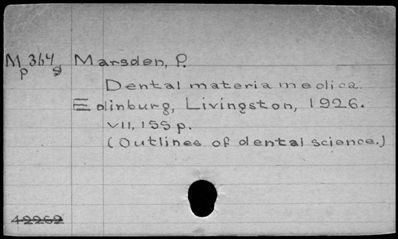 M 364 Marsden, P.
p g
Dental materia medica.
Edinburg, Livingston, 1926.
VII, 155 p.
(Outlines of dental science.)
42262